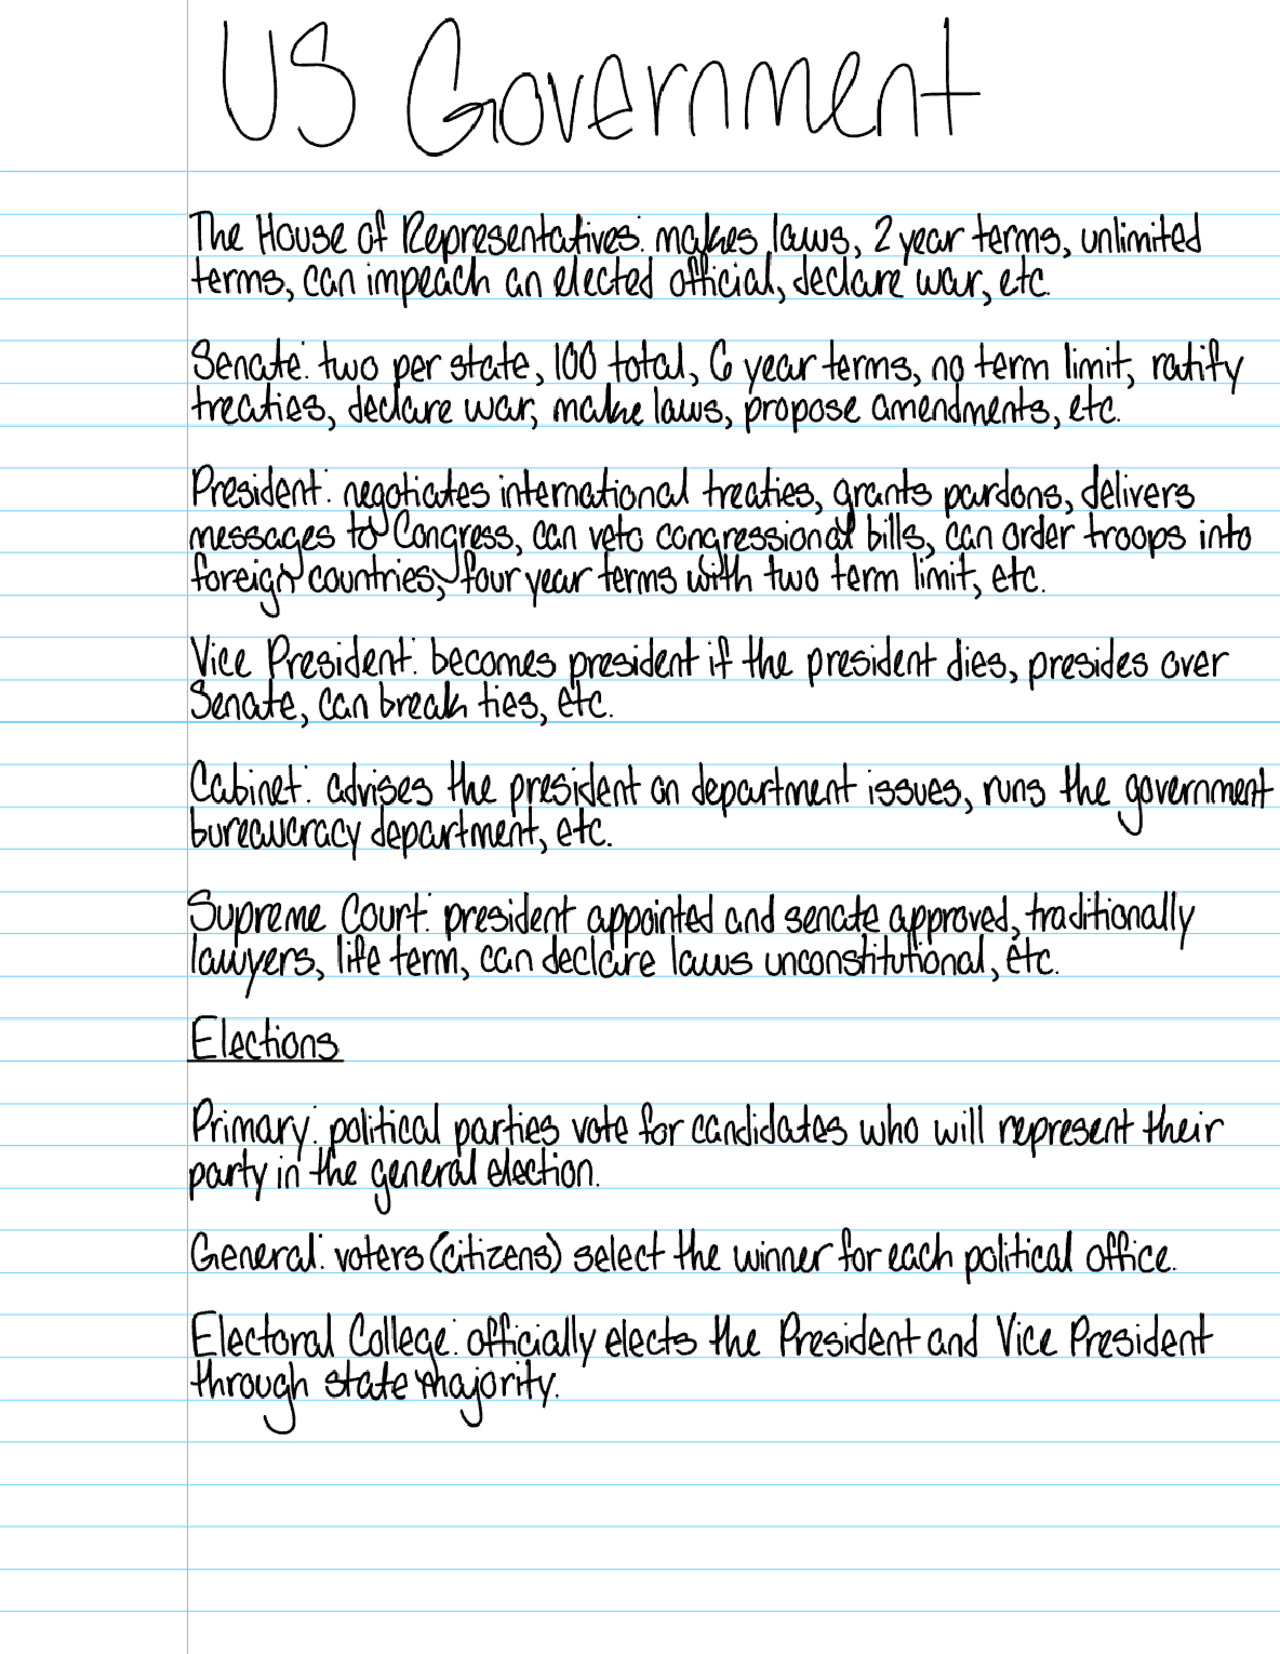 US Government
The House of Representatives: makes laws, 2 year terms, unlimited
terms, can impeach an elected official, declare war, etc.
Senate: two per state, 100 total, 6 year terms, no term limit, ratify
treaties, declare war, make laws, propose amendments, etc.
President: negotiates international treaties, grants pardons, delivers
messages to Congress, can veto congressional bills, can order troops into
foreign countries, four year terms with two term limit, etc.
Vice President: becomes president if the president dies, presides over
Senate, can break ties, etc.
Cabinet: advises the president on department issues, runs the government
bureaucracy department, etc.
Supreme Court: president appointed and senate approved, traditionally
lawyers, life term, can declare laws unconstitutional, etc.
Elections
Primary: political parties vote for candidates who will represent their
party in the general election.
General: voters (citizens) select the winner for each political office.
Electoral College: officially elects the President and Vice President
through state majority.